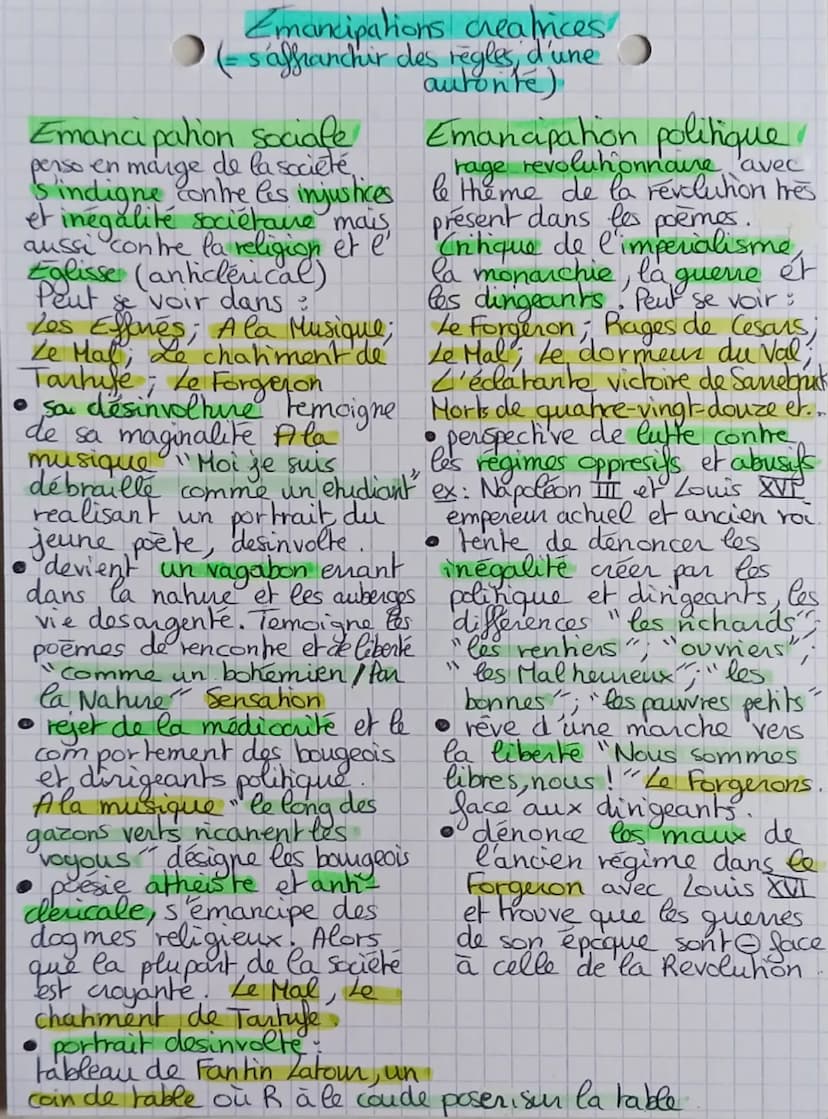 Emancipations creatrices
(= s'affranchir des règles, d'une
autorité)
Emancipation sociale
perso en marge de la société
s'indigne contre les injustices
et inégalité sociétaire mais
aussi contre la religion et l'
Eglisse (anticlérical)
Peut se voir dans :
Les Effarés ; A la Musique ;
Le Mal ; Le chatiment de
Tartufe ; Le Forgeron
• sa désinvolture temoigne
de sa maginalité A la
musique "Moi je suis
débraillé comme un etudiant"
realisant un portrait du
jeune poète, desinvolte.
• devient un vagabon errant
dans la nature et les auberges
vie desargenté. Temoigne les
poèmes de rencontre et de liberté
"comme un bohémien / par
la Nature" Sensation
• rejet de la médiocrité et le
comportement des bougeois
et dirigeants politique.
A la musique "le long des
gazons verts ricanent les
voyous" désigne les bougeois
• poésie atheiste et anti-
clericale, s'émancipe des
dogmes religieux. Alors
que la plupart de la société
est croyante. Le Mal, Le
chatiment de Tartufe.
• portrait desinvolte :
tableau de Fantin Latour, un
coin de table où R à le coude poser sur la table
Emancipation politique
rage revolutionnaire, avec
le thème de la révolution très
présent dans les poèmes.
Critique de l'imperialisme,
la monarchie, la guerre et
les dirigeants. Peut se voir :
Le Forgeron ; Rages de Cesars ;
Le Mal ; Le dormeur du Val ;
L'éclatante victoire de Sarrebruk
Morts de quatre-vingt-douze et...
• perspective de lutte contre
les régimes oppresifs et abusifs
ex : Napoléon III et Louis XVI
empereur actuel et ancien roi.
• tente de dénoncer les
inégalité créer par les
politique et dirigeants, les
différences "les richards" ;
"les rentiers" ; "ouvriers" ;
"les Malheureux" ; "les
bonnes" ; "les pauvres petits"
• rêve d'une marche vers
la liberté "Nous sommes
libres, nous !" Le Forgerons.
face aux dirigeants.
• dénonce les maux de
l'ancien régime dans le
Forgeron avec Louis XVI
et trouve que les guerres
de son époque sont ⊖ face
à celle de la Revolution.